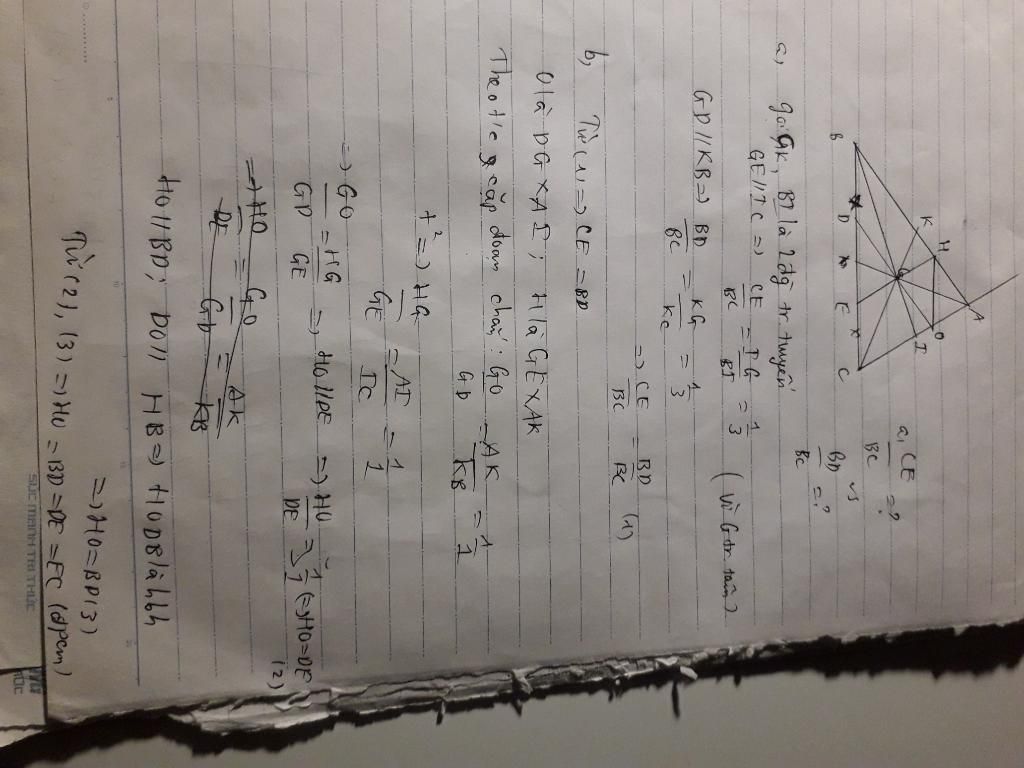 A
H
O
K
I
G
B
D
E
C
a, CE/BC = ?
BD/BC = ?
a, gọi CK, BI là 2 đg tr tuyến
GE // IC => CE/BC = IG/BI = 1/3 (vì G tr tâm)
GD // KB => BD/BC = KG/KC = 1/3
=> CE/BC = BD/BC (1)
b, Từ (1) => CE = BD
O là DG x AI ; H là GE x AK
Theo t/c cặp đoạn chắn: GO/GD = AK/KB = 1/1
=> HG/GE = AI/IC = 1/1
=> GO/GD = HG/GE => HO // DE => HO/DE = 1/1 (=> HO = DE
(2)
=> HO/DE = GO/GD = AK/KB
HO // BD ; DO // HB => HODB là hbh
=> HO = BD (3)
Từ (2), (3) => HO = BD = DE = EC (đpcm)
SỨC MẠNH TRI THỨC